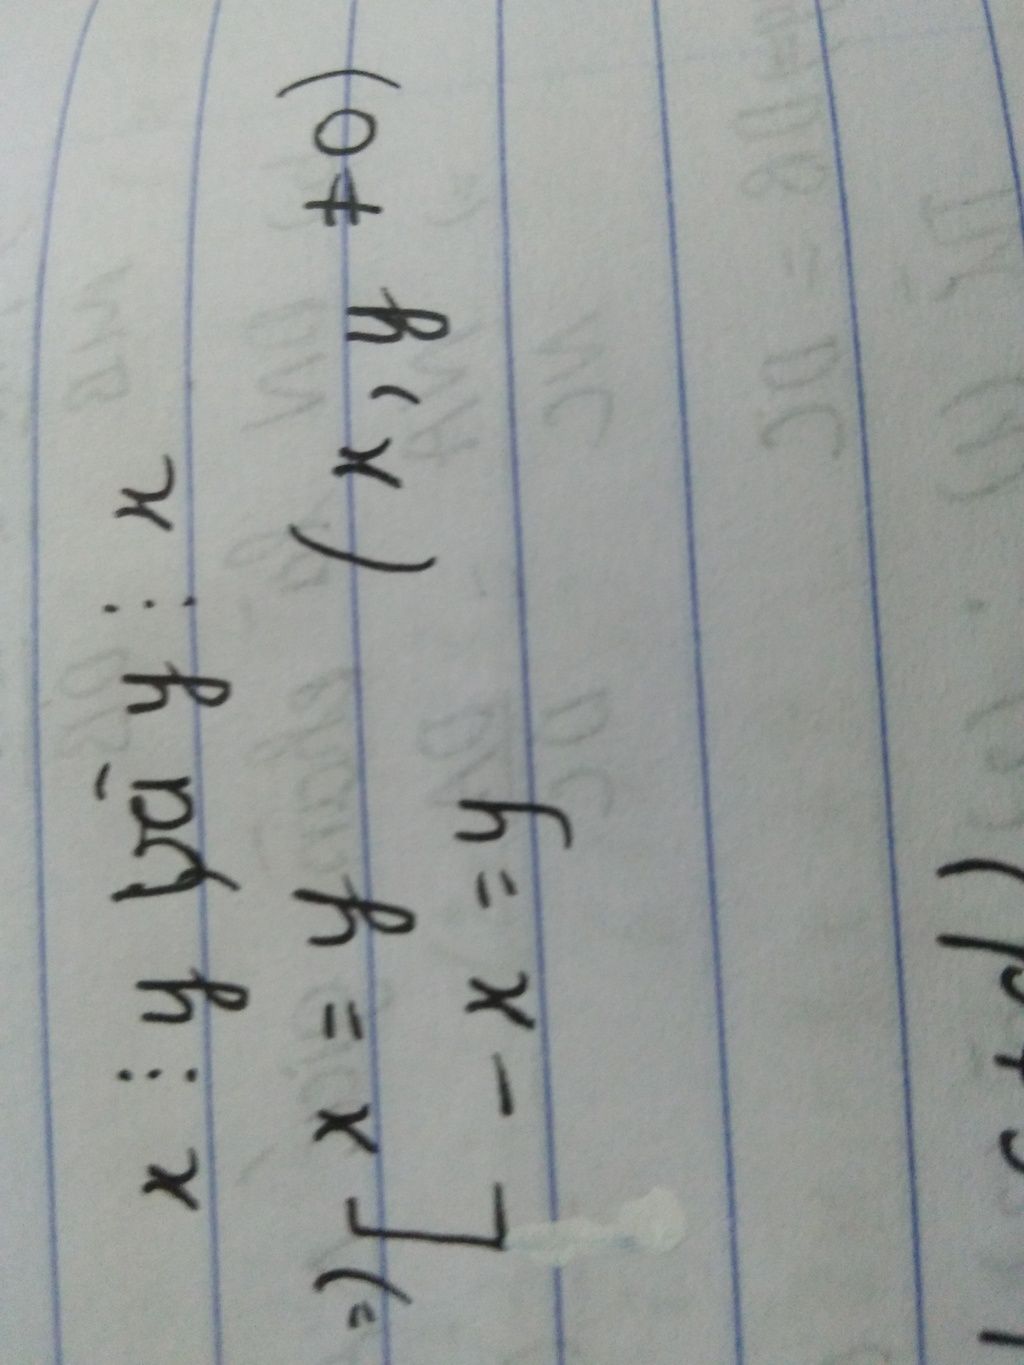 x ⋮ y và y ⋮ x
=) [ x = y ( x , y ≠ 0 )
- x = y